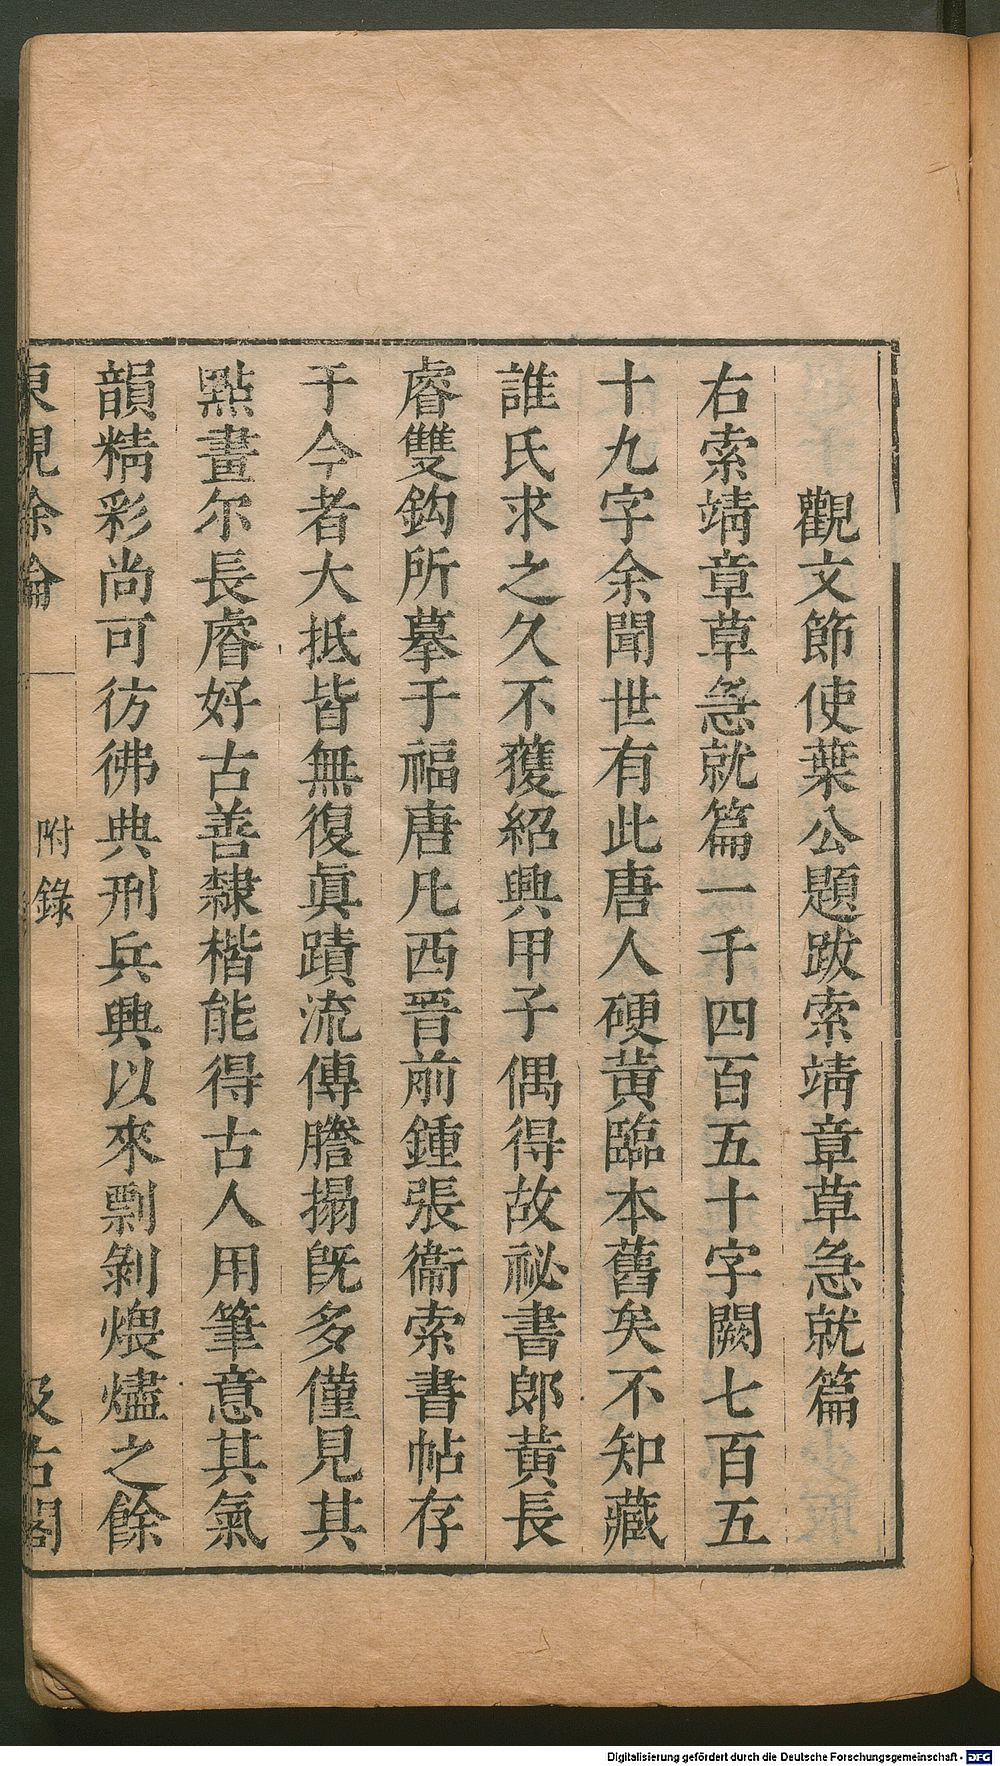 觀文節使葉公題跋索靖章草急就篇
右索靖章草急就篇一千四百五十字闕七百五
十九字余聞世有此唐人硬黃臨本舊矣不知藏
誰氏求之久不獲紹興甲子偶得故祕書郎黃長
睿雙鈎所摹于福唐凡西晉前鍾張衞索書帖存
于今者大抵皆無復眞蹟流傳謄搨旣多僅見其
點畫尔長睿好古善隸楷能得古人用筆意其氣
韻精彩尚可彷彿典刑兵興以來剽剝煨燼之餘
東觀餘論
附錄
汲古閣
Digitalisierung gefördert durch die Deutsche Forschungsgemeinschaft - DFG